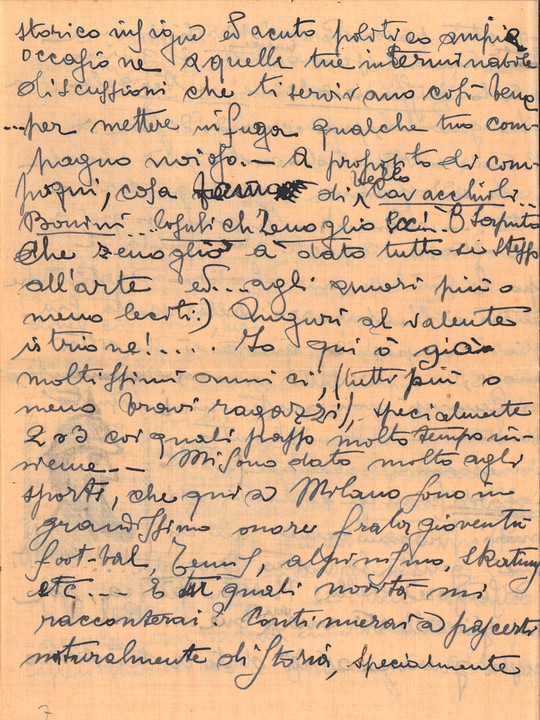 storico insigne ed acuto politico ampia
occasione a quelle tue interminabile
discussioni che ti servivano così bene
...per mettere in fuga qualche tuo com-
pagno noioso.— A proposito di com-
pagni, cosa di bello
Cavacchioli..
Bonini... Zenoglio (ò saputo
che Zenoglio à dato tutto se stesso
all'arte ed... agli amori più o
meno leciti.) Auguri al valente
istrione!.... Io qui ò già
moltissimi amici, (tutti più o
meno bravi ragazzi), specialmente
2 o 3 coi quali passo molto tempo in-
sieme.— Mi sono dato molto agli
sports, che qui a Milano sono in
grandissimo onore fra la gioventù
foot-bal, tennis, alpinismo, skating
etc... E tu quali novità mi
racconterai? Continuerai a pascerti
naturalmente di storia, specialmente
7